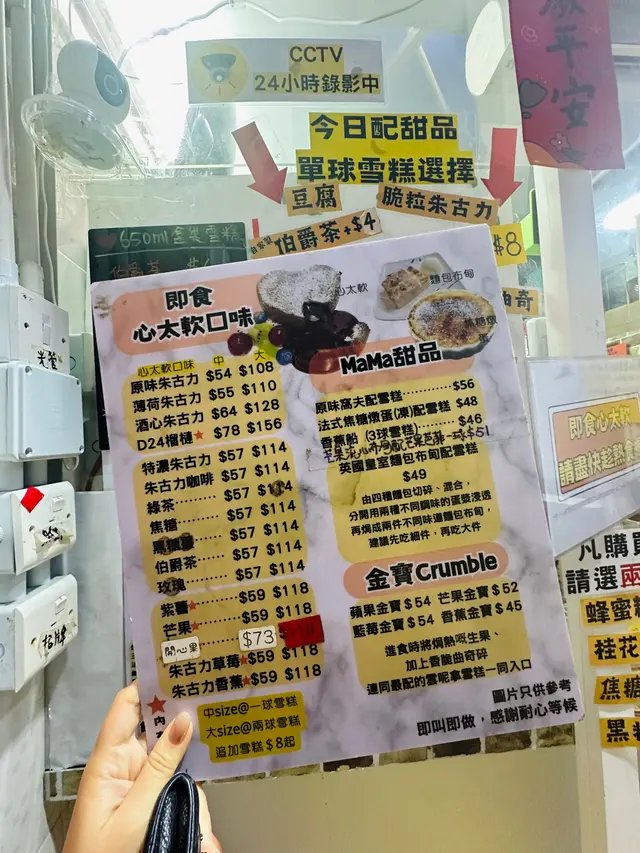 CCTV
24小時錄影中
平安
今日配甜品
單球雪糕選擇
豆腐
脆粒朱古力
伯爵茶+$4
$8
650ml
即食
心太軟口味
心太軟
麵包布甸
心太軟口味 中 大
原味朱古力 $54 $108
薄荷朱古力 $55 $110
酒心朱古力 $64 $128
D24榴槤★ $78 $156
特濃朱古力 $57 $114
朱古力咖啡 $57 $114
綠茶 $57 $114
焦糖 $57 $114
黑糖薑 $57 $114
伯爵茶 $57 $114
玫瑰 $57 $114
紫薯★ $59 $118
芒果★ $59 $118
開心果 $73
朱古力草莓★$59 $118
朱古力香蕉★$59 $118
中size@一球雪糕
大size@兩球雪糕
追加雪糕$8起
MaMa甜品
原味窩夫配雪糕 $56
法式焦糖燉蛋(凍)配雪糕 $48
香蕉船 (3球雪糕) $46
$51
英國皇室麵包布甸配雪糕
$49
由四種麵包切碎、混合,
分開用兩種不同調味的蛋漿浸透
再焗成兩件不同味道麵包布甸,
建議先吃細件,再吃大件
金寶Crumble
蘋果金寶$54 芒果金寶$52
藍莓金寶$54 香蕉金寶$45
進食時將焗熱嘅生果、
加上香脆曲奇碎
連同最配的雲呢拿雪糕一同入口
圖片只供參考
即叫即做,感謝耐心等候
即食心太軟
請盡快趁熱
凡購買
請選兩
蜂蜜
桂花
焦糖
黑糖